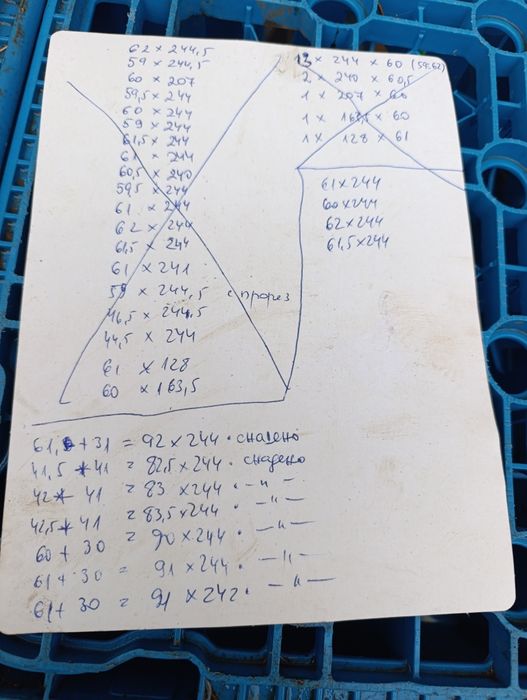 62 × 244,5
59 × 244,5
60 × 207
59,5 × 244
60 × 244
59 × 244
61,5 × 244
61 × 244
60,5 × 240
59,5 × 244
61 × 244
62 × 244
61,5 × 244
61 × 241
59 × 244,5 с прорез
46,5 × 244,5
44,5 × 244
61 × 128
60 × 163,5
13 × 244 × 60 (59:62)
2 × 240 × 60,5
1 × 207 × 60
1 × 163,5 × 60
1 × 128 × 61
61 × 244
60 × 244
62 × 244
61,5 × 244
61, + 31 = 92 × 244 · снадено
41,5 + 41 = 82,5 × 244 · снадено
42 + 41 = 83 × 244 · — " —
42,5 + 41 = 83,5 × 244 · — " —
60 + 30 = 90 × 244 · — " —
61 + 30 = 91 × 244 · — " —
61 + 30 = 91 × 242 · — " —